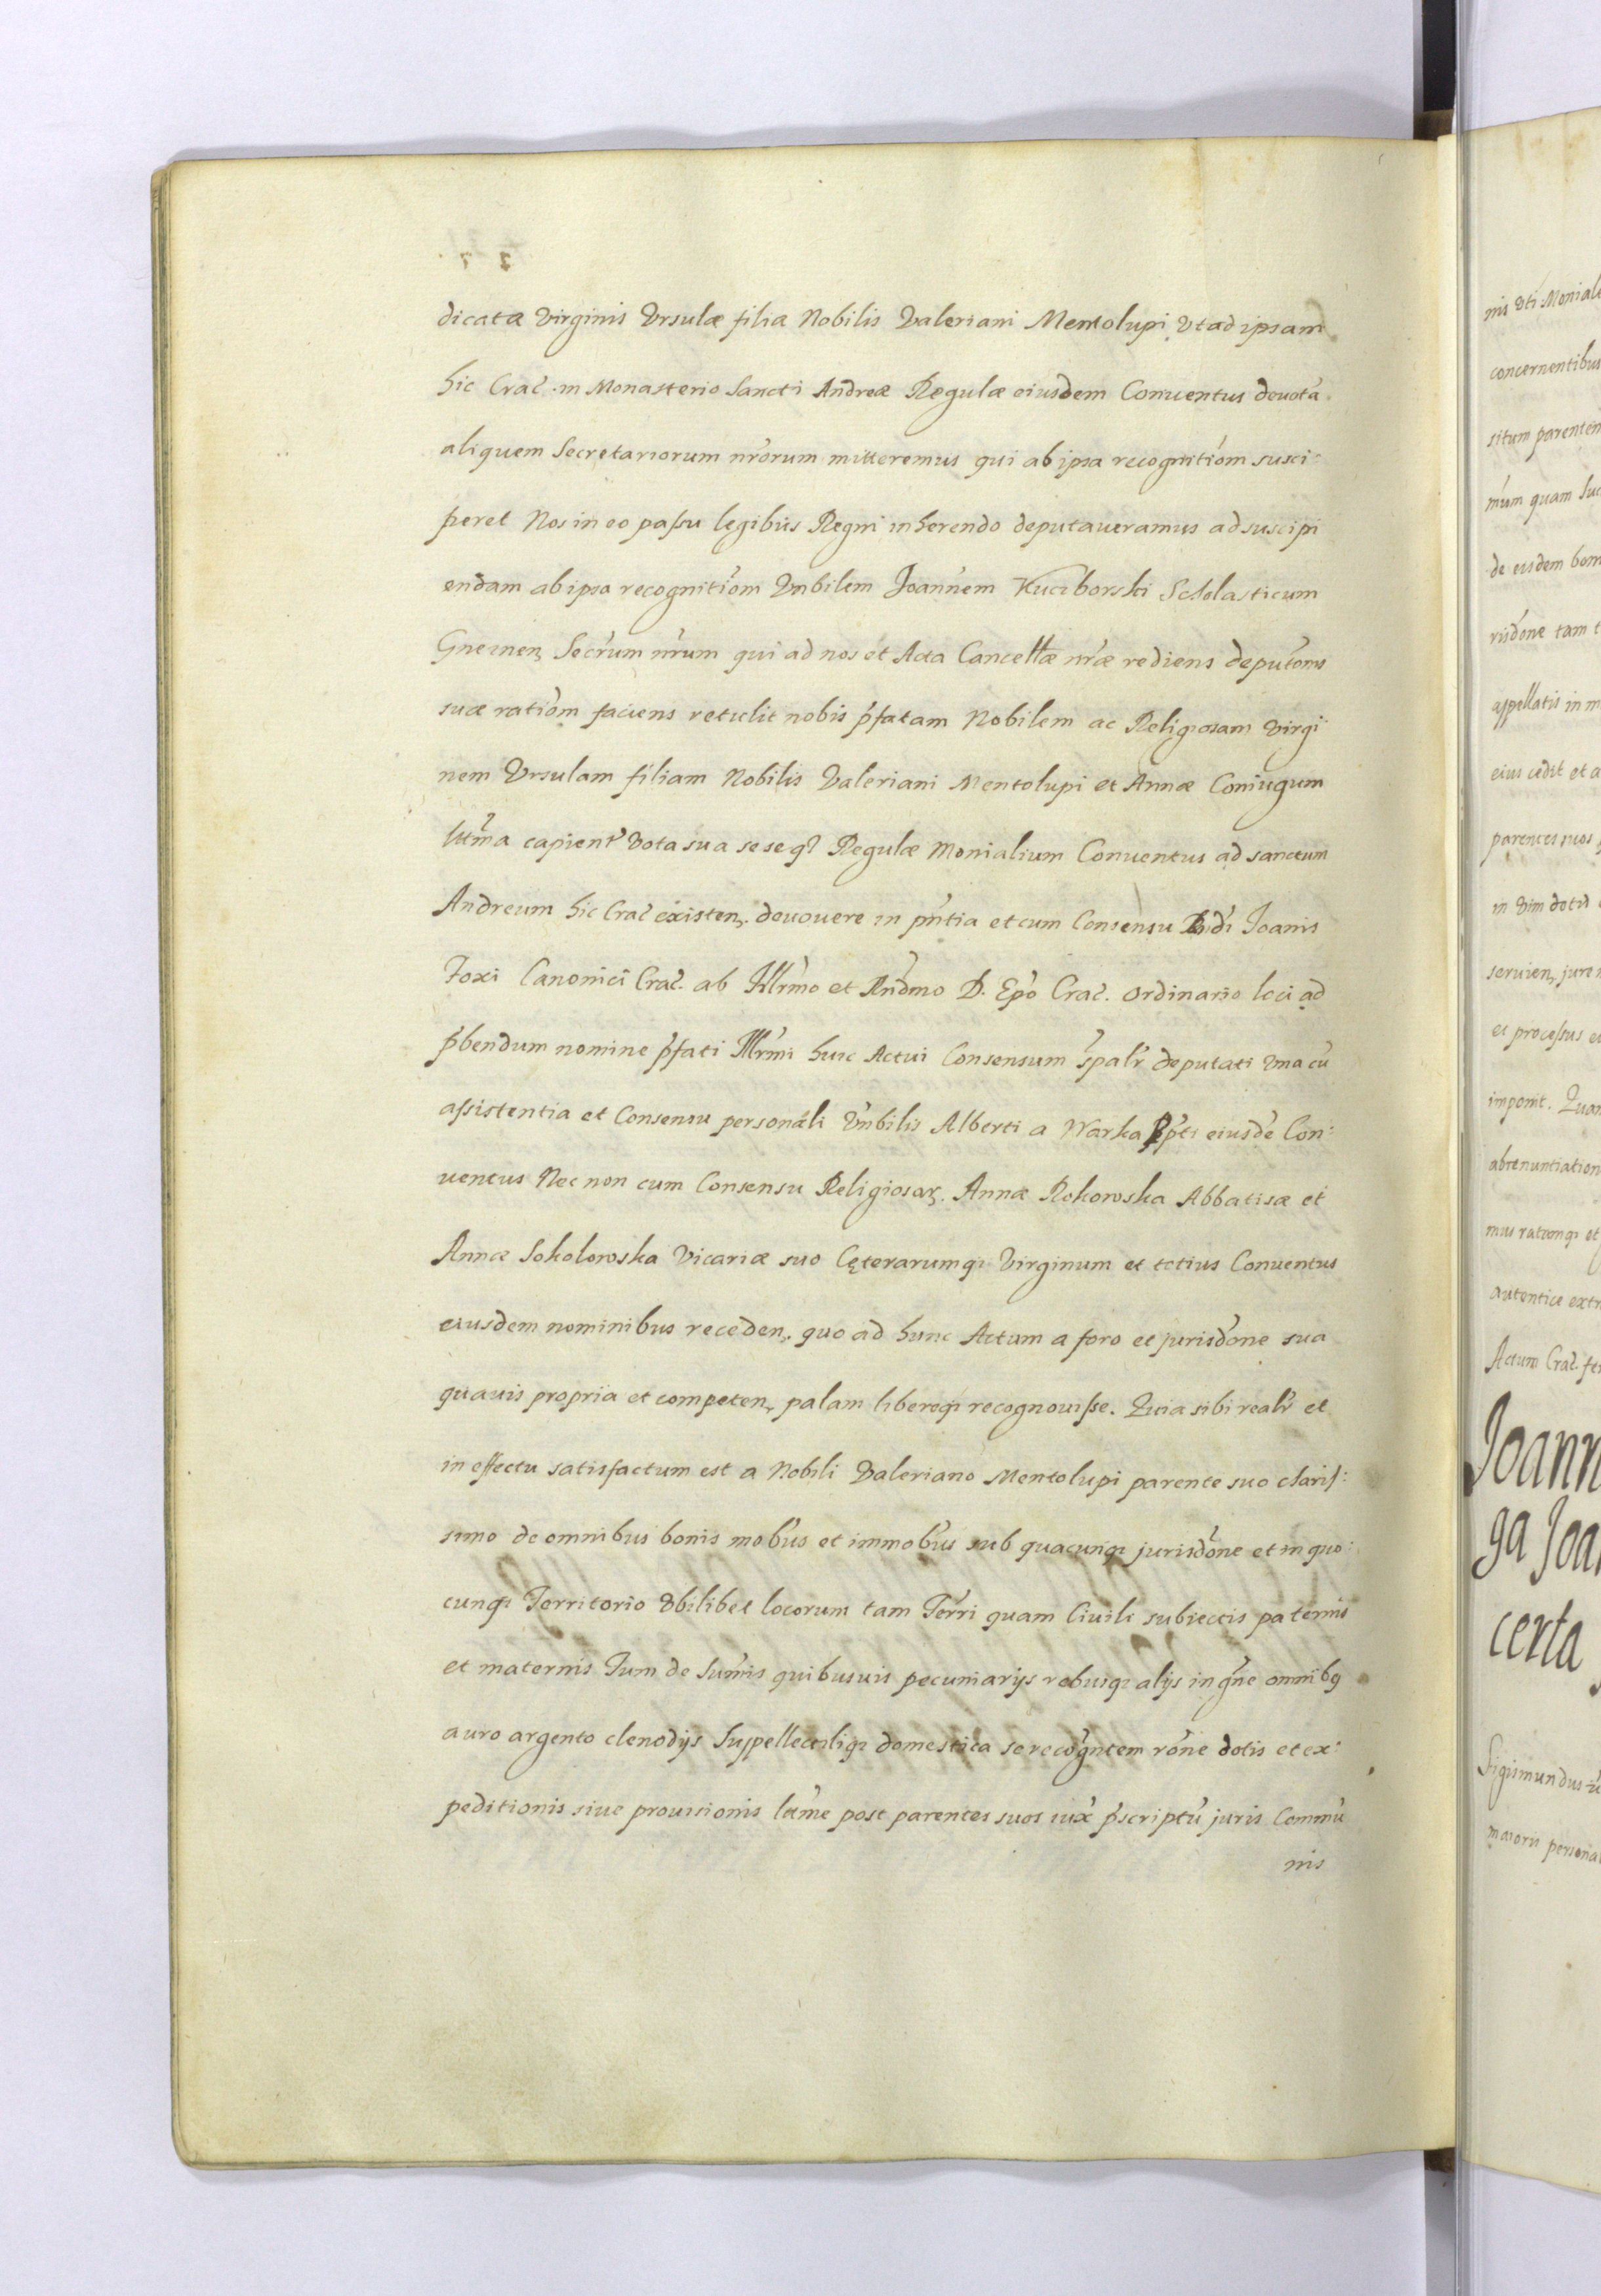 dicatæ Virginis Vrsulæ filiæ Nobilis Valeriani Mentolupi vt ad ipsam
hic Crac̃. in Monasterio Sancti Andreæ Regulæ eiusdem Conuentus deuotã
aliquem Secretariorum nr̃orum mitteremus qui ab ipsa recognitiõm susci:
peret Nos in eo passu legibus Regni inherendo deputaueramus ad suscipi
endam ab ipsa recognitiõm Vn̄bilem Joannem Kuciborski Scholasticum
Gneznen̨ Secr̃um nr̃um qui ad nos et Acta Cancellæ nr̃æ rediens deputõnis
suæ ratiõm faciens retulit nobis p̃fatam Nobilem ac Religiosam virgi:
nem Vrsulam filiam Nobilis Valeriani Mentolupi et Annæ Coniugum
lt̃ma capient̃ Vota sua sese q̃ Regulæ Monialium Conuentus ad sanctum
Andream hic Crac̃ existen̨. deuouere in p̃ntia et cum Consensu Rñdi Joanis
Foxi Canonici Crac̃. ab Illr̃mo et Rñdmo D. Ep̃o Crac̃. ordinario loci ad
p̃bendum nomine p̃fati Illr̃mi huic Actui Consensum sp̃alr̃ deputati vna cũ
assistentia et Consensu personali Vñbilis Alberti a Warka Pp̃ti eiusdẽ Con:
uentus Nec non cum Consensu Religiosar̨. Annæ Rokowska Abbatisæ et
Annæ Sokolowska Vicariæ suo Cęterarumqȝ Virginum et totius Conuentus
eiusdem nominibus receden̨. quo ad hunc Actum a foro et jurisdõne sua
quauis propria et competen̨ palam libereqȝ recognouisse. Quia sibi realr̃ et
in effectu satisfactum est a Nobili Valeriano Mentolupi parente suo charis:
simo de omnibus bonis mob̃us et immob̃us sub quacunqȝ jurisdõne et in quo:
cunqȝ Territorio vbilibet locorum tam Terr̃i quam Ciuili subiectis paternis
et maternis Tum de Sum̃is quibusuis pecuniarijs rebusqȝ alijs in gñe omnibq
auro argento clenodijs Suppellectiliqȝ domestica se recõgntem rõne dotis et ex:
peditionis siue prouisionis lt̃me post parentes suos iux̃ p̃scriptũ juris Commũ
nis
Joann
ga Joa
certa